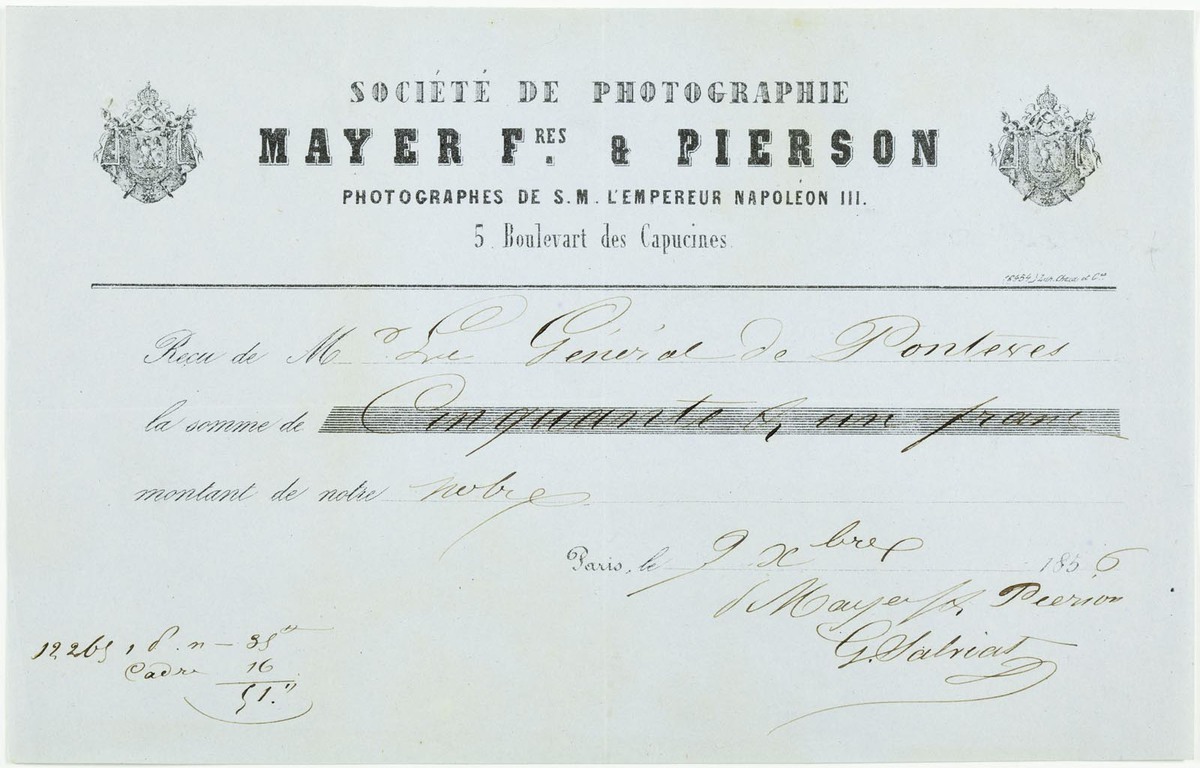 SOCIÉTÉ DE PHOTOGRAPHIE
MAYER F.RES & PIERSON
PHOTOGRAPHES DE S.M. L'EMPEREUR NAPOLÉON III.
5. Boulevart des Capucines.
Reçu de Mr Le Général de Pontevès
la somme de Cinquante & un franc
montant de notre
Paris, le 9 Xbre 1856
Mayer fs, Pierson
G. Salviat
12265, 1 d. n — 35"
Cadre 16
51."